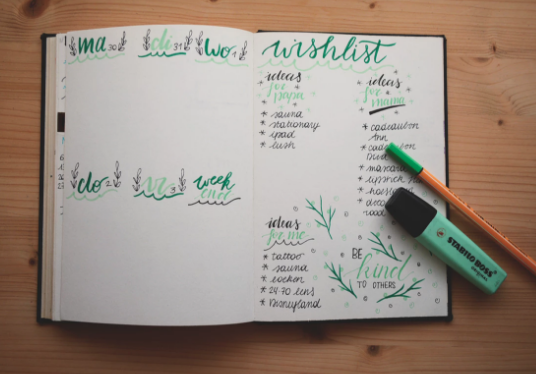 ma 30
di 31
wo 1
do 2
vr 3
week
end
wishlist
ideas
for
papa
* sauna
* stationary
* ipad
* lush
ideas
for
mama
* cadeaubon
Ann
* mascara
* lipstick
ideas
for me
* tattoo
* sauna
* boeken
* 24-70 lens
* Disneyland
BE
kind
TO OTHERS
STABILO BOSS